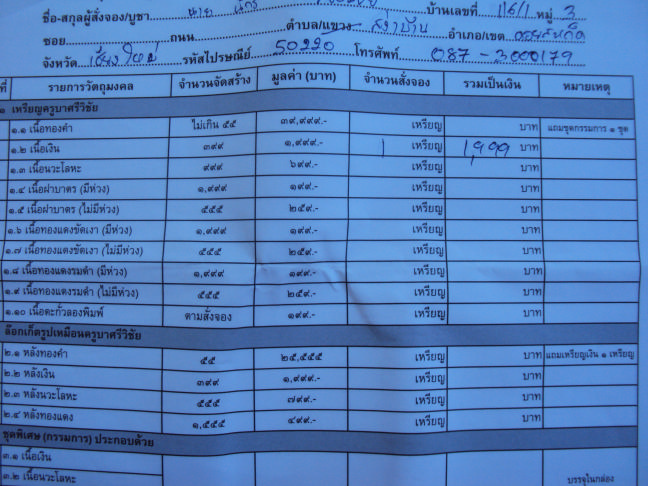 ชื่อ-สกุลผู้สั่งจอง/บูชา นาย บ้านเลขที่ 116/1 หมู่ 3
ซอย ถนน ตำบล/แขวง สง่าบ้าน อำเภอ/เขต ดอยสะเก็ด
จังหวัด เชียงใหม่ รหัสไปรษณีย์ 50220 โทรศัพท์ 087-3000179
ที่ รายการวัตถุมงคล จำนวนจัดสร้าง มูลค่า (บาท) จำนวนสั่งจอง รวมเป็นเงิน หมายเหตุ
๑ เหรียญครูบาศรีวิชัย
๑.๑ เนื้อทองคำ ไม่เกิน ๕๕ ๓๙,๙๙๙.- เหรียญ บาท แถมชุดกรรมการ ๑ ชุด
๑.๒ เนื้อเงิน ๓๙๙ ๑,๙๙๙.- 1 เหรียญ 1,999 บาท
๑.๓ เนื้อนวะโลหะ ๙๙๙ ๖๙๙.- เหรียญ บาท
๑.๔ เนื้อฝาบาตร (มีห่วง) ๑,๙๙๙ ๑๙๙.- เหรียญ บาท
๑.๕ เนื้อฝาบาตร (ไม่มีห่วง) ๕๕๕ ๒๕๙.- เหรียญ บาท
๑.๖ เนื้อทองแดงขัดเงา (มีห่วง) ๑,๙๙๙ ๑๙๙.- เหรียญ บาท
๑.๗ เนื้อทองแดงขัดเงา (ไม่มีห่วง) ๕๕๕ ๒๕๙.- เหรียญ บาท
๑.๘ เนื้อทองแดงรมดำ (มีห่วง) ๑,๙๙๙ ๑๙๙.- เหรียญ บาท
๑.๙ เนื้อทองแดงรมดำ (ไม่มีห่วง) ๕๕๕ ๒๕๙.- เหรียญ บาท
๑.๑๐ เนื้อตะกั่วลองพิมพ์ ตามสั่งจอง ๑๙๙.- เหรียญ บาท
ล๊อกเก็ตรูปเหมือนครูบาศรีวิชัย
๒.๑ หลังทองคำ ๕๕ ๒๕,๕๕๕ เหรียญ บาท แถมเหรียญเงิน ๑ เหรียญ
๒.๒ หลังเงิน ๓๙๙ ๑,๙๙๙.- เหรียญ บาท
๒.๓ หลังนวะโลหะ ๕๕๕ ๗๙๙.- เหรียญ บาท
๒.๔ หลังทองแดง ๑,๕๕๕ ๔๙๙.- เหรียญ บาท
ชุดพิเศษ (กรรมการ) ประกอบด้วย
๓.๑ เนื้อเงิน
๓.๒ เนื้อนวะโลหะ บรรจุในกล่อง